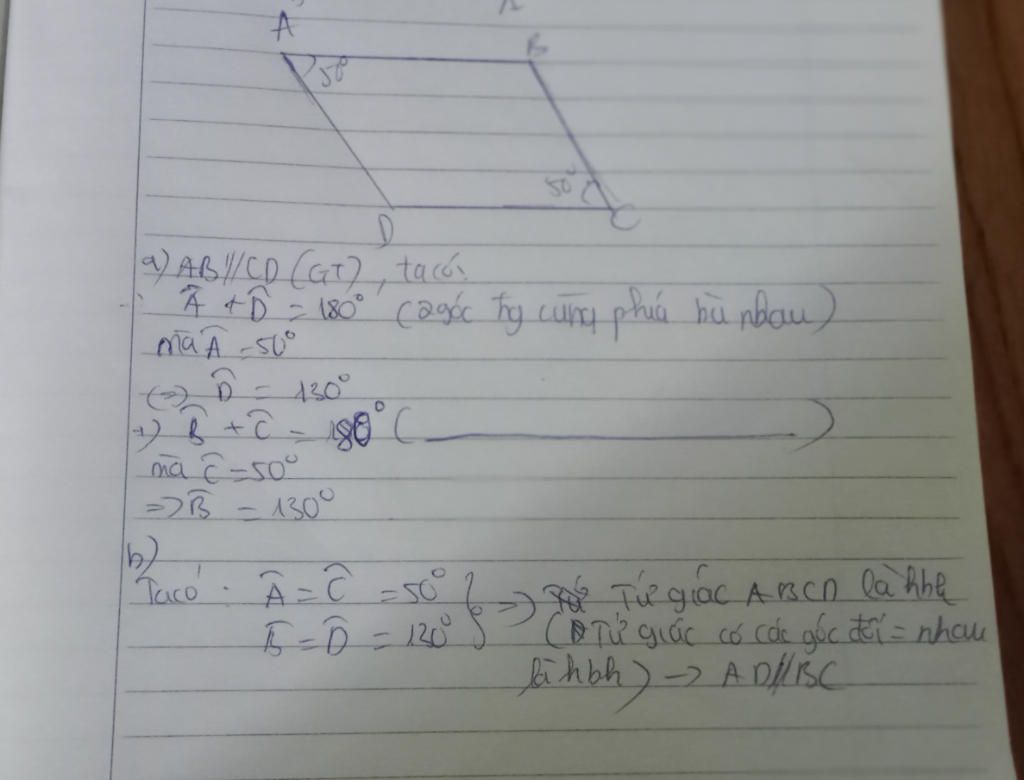 A
B
50°
50°
D
C
a) AB//CD (GT), ta có:
Â + D̂ = 180° (2góc tg cùng phía bù nhau)
mà Â = 50°
(=>) D̂ = 130°
+) B̂ + Ĉ = 180° ( )
mà Ĉ = 50°
=> B̂ = 130°
b)
Ta có: Â = Ĉ = 50° } => Tứ giác ABCD là hbh
B̂ = D̂ = 130° (Tứ giác có các góc đối = nhau
là hbh) -> AD//BC